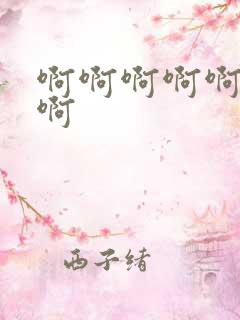 啊啊啊啊啊
啊
西子绪